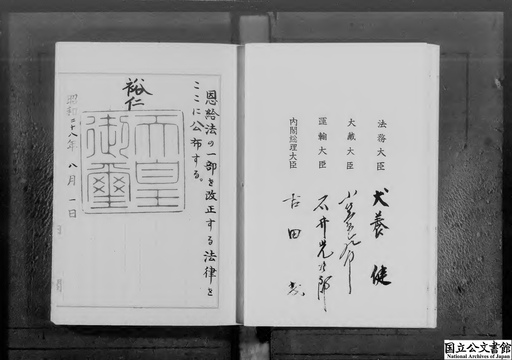 法務大臣 犬養健
大蔵大臣 小笠原三九郎
運輸大臣 石井光次郎
内閣総理大臣 吉田茂
恩給法の一部を改正する法律を
ここに公布する。
裕仁
天皇
御璽
昭和二十八年八月一日
国立公文書館
National Archives of Japan